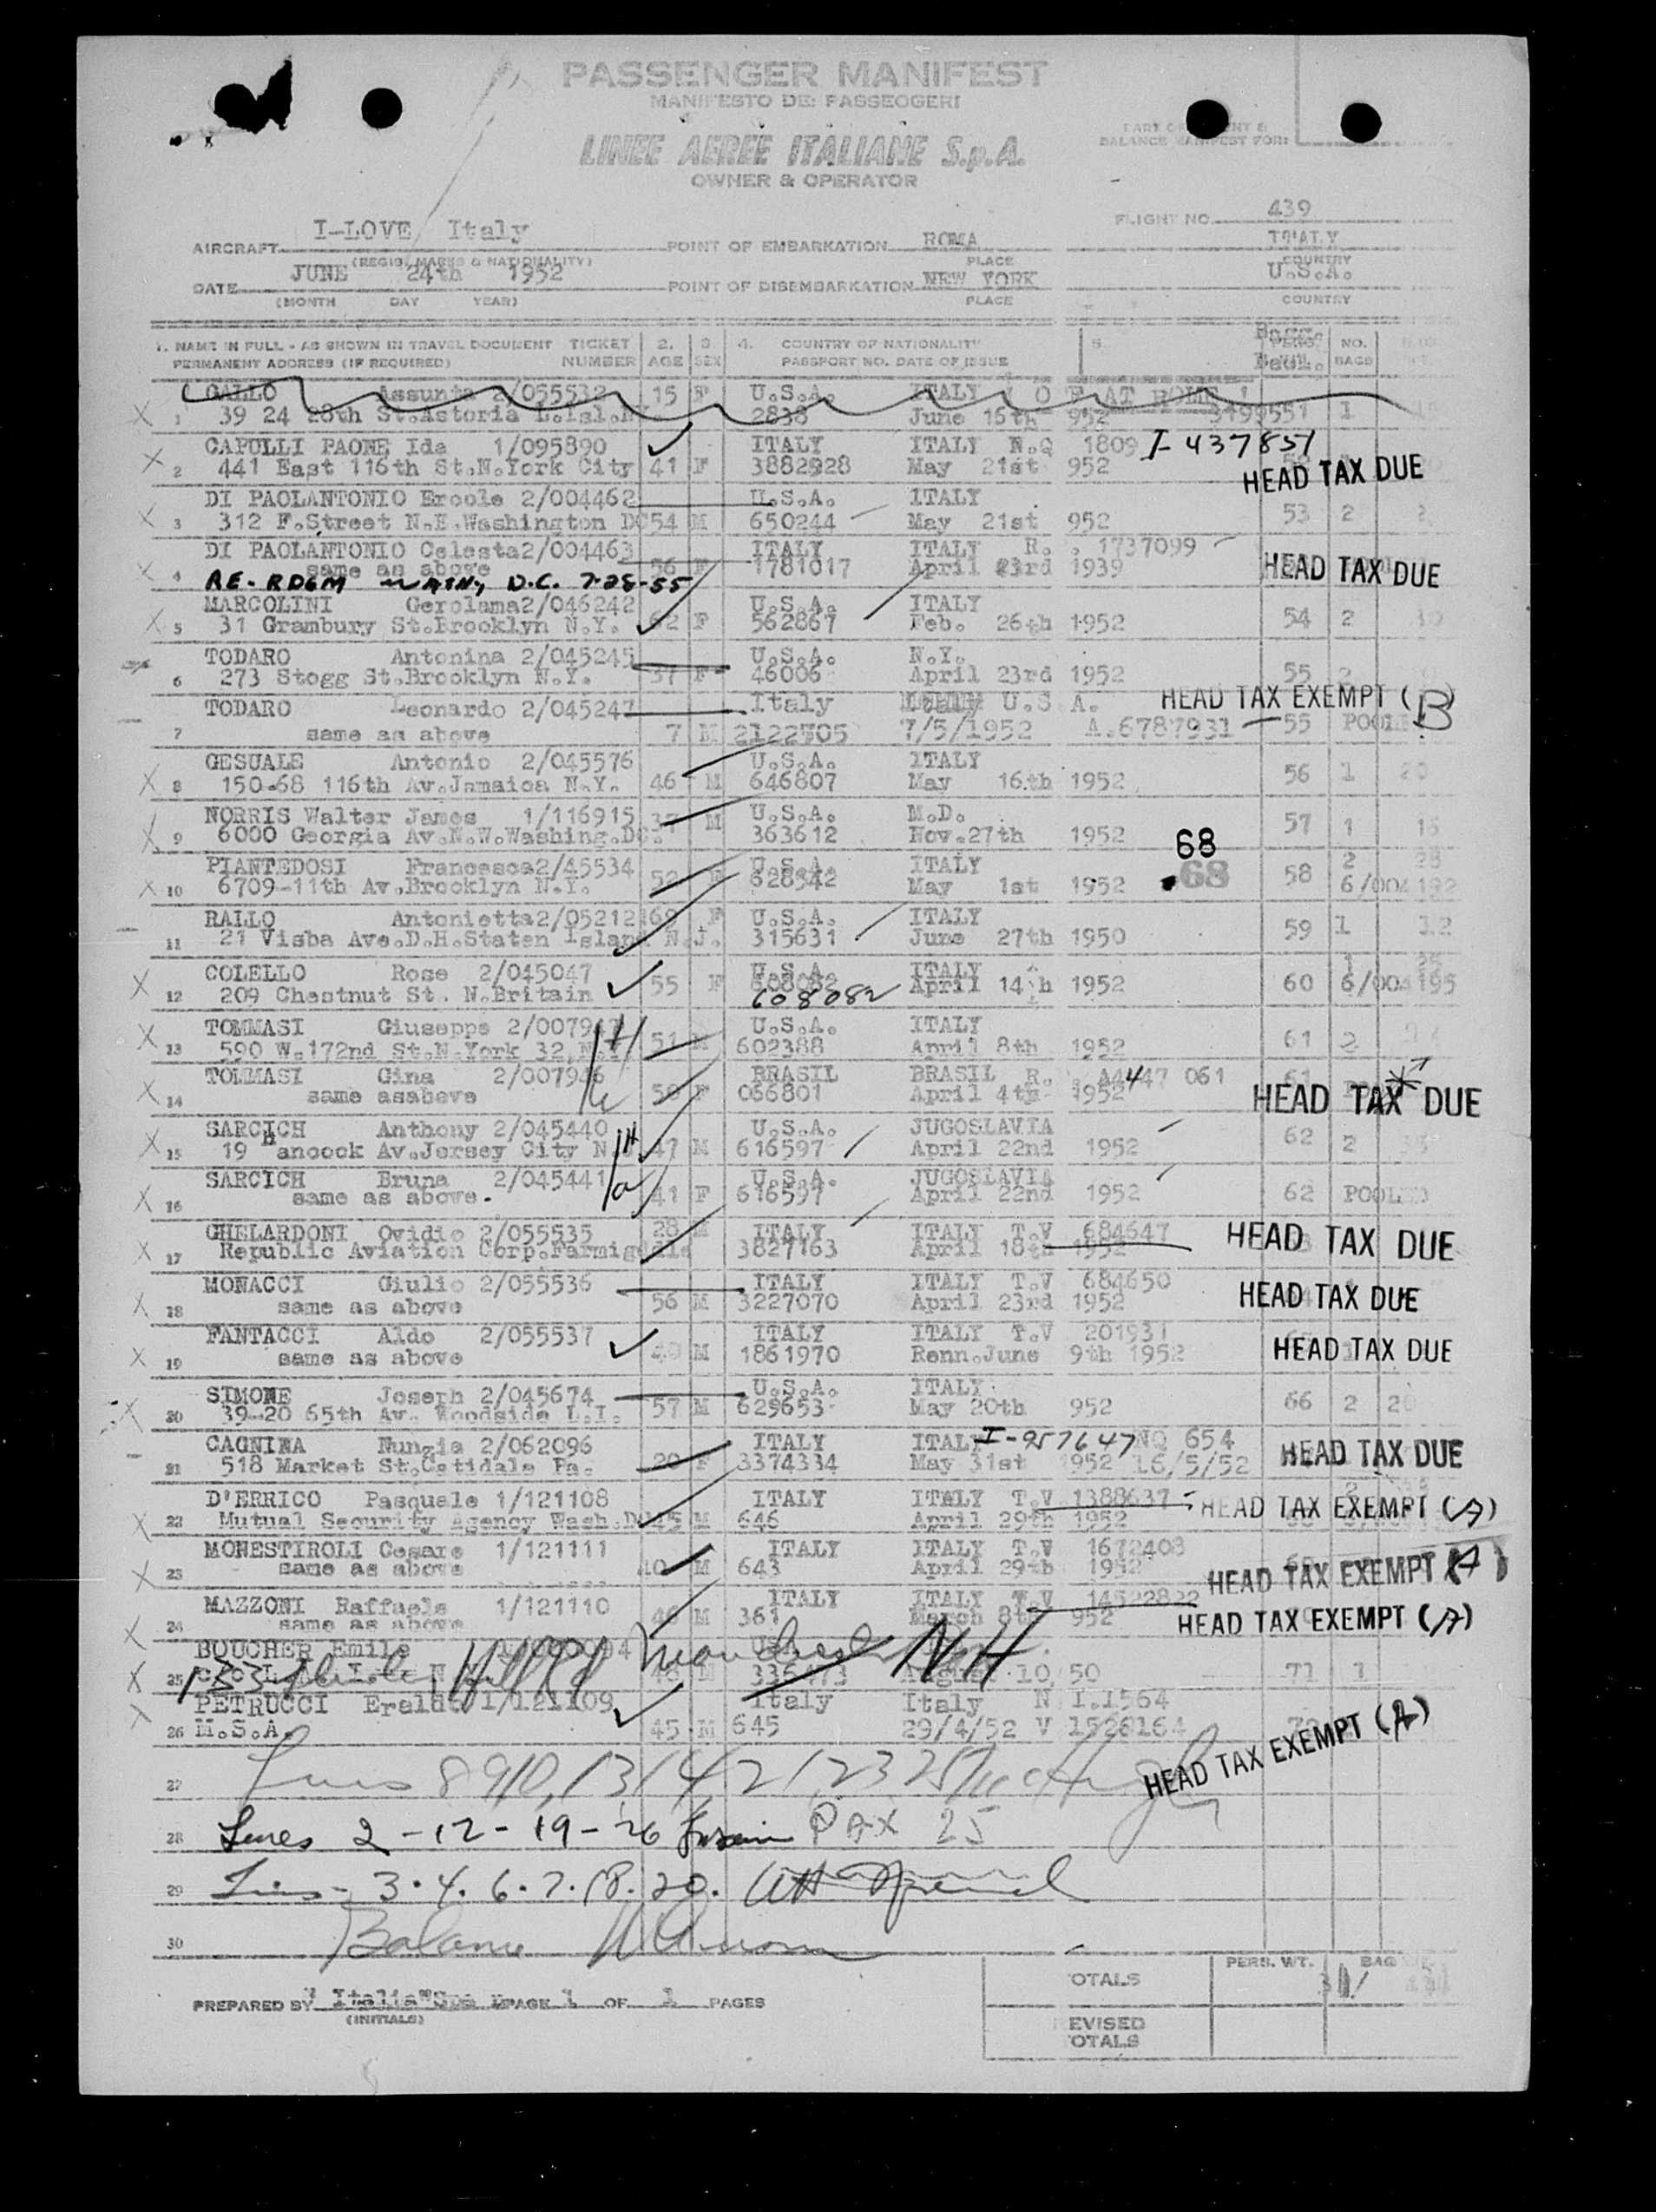 PASSENGER MANIFEST
MANIFESTO DEI PASSEGGERI
LINEE AEREE ITALIANE S.p.A.
OWNER & OPERATOR
BALANCE MANIFEST FOR:
AIRCRAFT I-LOVE Italy POINT OF EMBARKATION ROMA FLIGHT NO. 439
(REGIS. MARKS & NATIONALITY) PLACE ITALY COUNTRY
DATE JUNE 24th 1952 POINT OF DISEMBARKATION NEW YORK U.S.A.
(MONTH DAY YEAR) PLACE COUNTRY
1. NAME IN FULL - AS SHOWN IN TRAVEL DOCUMENT TICKET 2. 3 4. COUNTRY OF NATIONALITY 5. NO.
PERMANENT ADDRESS (IF REQUIRED) NUMBER AGE SEX PASSPORT NO. DATE OF ISSUE BAGS
GALLO Assunta 2/055532 15 F U.S.A. ITALY
1 39 24 28th St.Astoria L.Isl.N. 2838 June 16th 952 3199551 1
CAPULLI PAONE Ida 1/095890 ITALY ITALY N.Q 1809 I-437851
2 441 East 116th St.N.York City 41 F 3882928 May 21st 952 HEAD TAX DUE
DI PAOLANTONIO Ercole 2/004462 U.S.A. ITALY
3 312 F.Street N.E.Washington DC 54 M 650244 May 21st 952 53 2
DI PAOLANTONIO Celesta 2/004463 ITALY ITALY R. . 1737099
4 same as above 56 F 1781017 April 23rd 1939 HEAD TAX DUE
RE-RDGM WASN, D.C. 7-28-55
MARCOLINI Gerolama 2/046242 U.S.A. ITALY
5 31 Grambury St.Brooklyn N.Y. 62 F 562867 Feb. 26th 1952 54 2
TODARO Antonina 2/045245 U.S.A. N.Y.
6 273 Stogg St.Brooklyn N.Y. 37 F 46006 April 23rd 1952 55 2
TODARO Leonardo 2/045247 Italy U.S A. HEAD TAX EXEMPT (B)
7 same as above 7 M 2122705 7/5/1952 A.6787931 55 POOLED
GESUALE Antonio 2/045576 U.S.A. ITALY
8 150-68 116th Av.Jamaica N.Y. 46 M 646807 May 16th 1952 56 1 20
NORRIS Walter James 1/116915 37 M U.S.A. M.D.
9 6000 Georgia Av.N.W.Washing.DC. 363612 Nov.27th 1952 57 1 16
68
PIANTEDOSI Francesca 2/45534 U.S.A. ITALY 2 28
10 6709-11th Av.Brooklyn N.Y. 52 F 628542 May 1st 1952 68 58 6/004192
RALLO Antonietta 2/05212 69 F U.S.A. ITALY
11 21 Visba Ave.D.H.Staten Island N.J. 315631 June 27th 1950 59 1 12
COLELLO Rose 2/045047 U.S.A. ITALY
12 209 Chestnut St. N.Britain 55 F 608082 April 14th 1952 60 6/004195
608082
TOMMASI Giuseppe 2/007947 U.S.A. ITALY
13 590 W.172nd St.N.York 32,N.Y. 51 M 602388 April 8th 1952 61 2
TOMMASI Gina 2/007946 BRASIL BRASIL R. . A4447 061 61
14 same asabove 50 F 066801 April 4th 1952 HEAD TAX DUE
SARCICH Anthony 2/045440 U.S.A. JUGOSLAVIA
15 19 Hancock Av.Jersey City N.J. 47 M 616597 April 22nd 1952 62 2
SARCICH Bruna 2/045441 U.S.A. JUGOSLAVIA
16 same as above. 41 F 616597 April 22nd 1952 62 POOLED
GHELARDONI Ovidio 2/055535 28 M ITALY ITALY T.V 684647
17 Republic Aviation Corp.Farmigdale 3827163 April 18th 1952 HEAD TAX DUE
MONACCI Giulio 2/055536 ITALY ITALY T.V 684650
18 same as above 56 M 3227070 April 23rd 1952 HEAD TAX DUE
FANTACCI Aldo 2/055537 ITALY ITALY T.V 201931
19 same as above 49 M 1861970 Renn.June 9th 1952 HEAD TAX DUE
SIMONE Joseph 2/045674 U.S.A. ITALY
20 39-20 65th Av. Woodside L.I. 57 M 629653 May 20th 952 66 2
CAGNINA Nunzia 2/062096 ITALY ITALY I-957647 NQ 654
21 518 Market St.Catidale Pa. 20 F 3374334 May 31st 1952 16/5/52 HEAD TAX DUE
D'ERRICO Pasquale 1/121108 ITALY ITALY T.V 1388637 HEAD TAX EXEMPT (A)
22 Mutual Security Agency Wash.DC 45 M 646 April 29th 1952
MONESTIROLI Cesare 1/121111 ITALY ITALY T.V 1672403
23 same as above 40 M 643 April 29th 1952 HEAD TAX EXEMPT (A)
MAZZONI Raffaele 1/121110 ITALY ITALY T.V 14522822
24 same as above 46 M 361 March 8th 952 HEAD TAX EXEMPT (A)
BOUCHER Emile Manchester NH
25 M August 10, 50 71 1
PETRUCCI Eraldo 1/121109 Italy Italy N I.1564
26 M.S.A. 45 M 645 29/4/52 V 1528164
HEAD TAX EXEMPT (A)
27
28 Lines 2-12-19-26 PAX 25
29 Lines 3.4.6.7.18.20.
30 Balance
PERS. WT. BAG
TOTALS
PREPARED BY "Italia" PAGE 1 OF 1 PAGES
(INITIALS)
REVISED
TOTALS